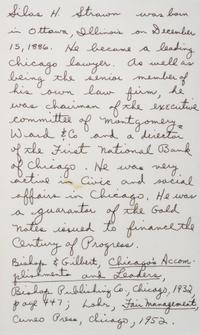 Silas H. Strawn was born
in Ottawa, Illinois on December
15, 1886. He became a leading
Chicago lawyer. As well as
being the senior member of
his own law firm, he
was chairman of the executive
committee of Montgomery
Ward & Co and a director
of the First National Bank
of Chicago. He was very
active in Civic and social
affairs in Chicago. He was
a guarantor of the Gold
Notes issued to finance the
Century of Progress.
Bishop & Gilbert, Chicago's Accom-
plishments and Leaders,
Bishop Publishing Co, Chicago, 1932
page 447; Lohr, Fair Management,
Cuneo Press, Chicago, 1952.